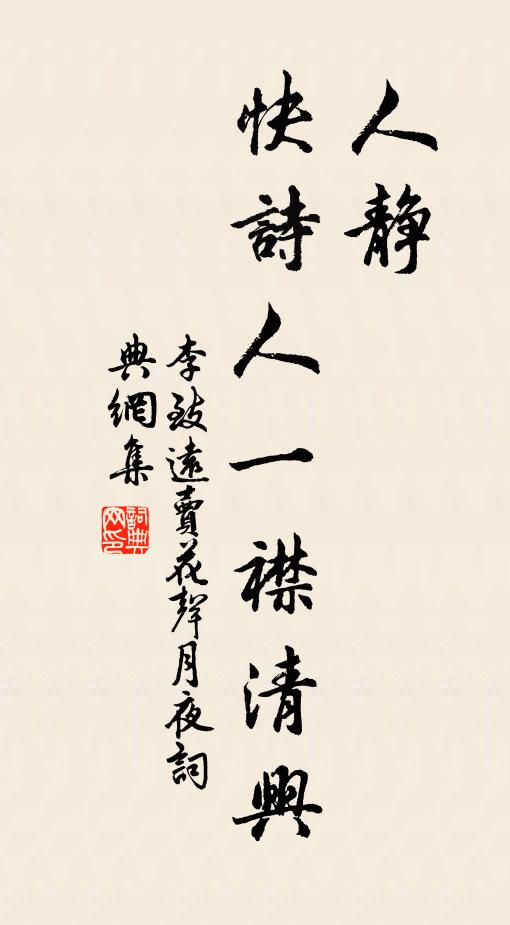 人靜
快詩人一襟清興
李致遠賣花聲月夜詞
典網集
詞典
网印